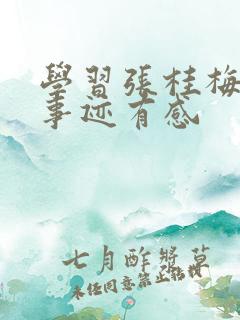 學習張桂梅
事迹有感
七月酢漿草
未经同意禁止转载